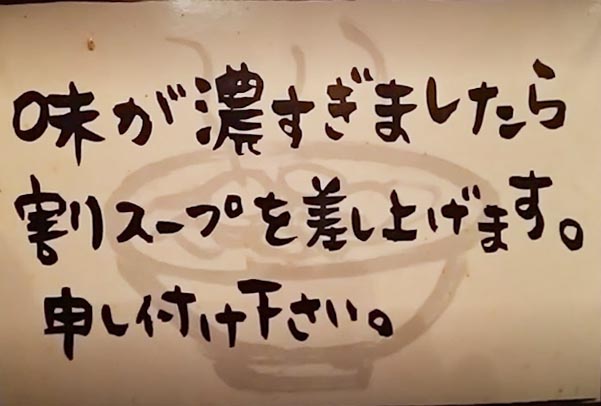 味が濃すぎましたら
割りスープを差し上げます。
申し付け下さい。